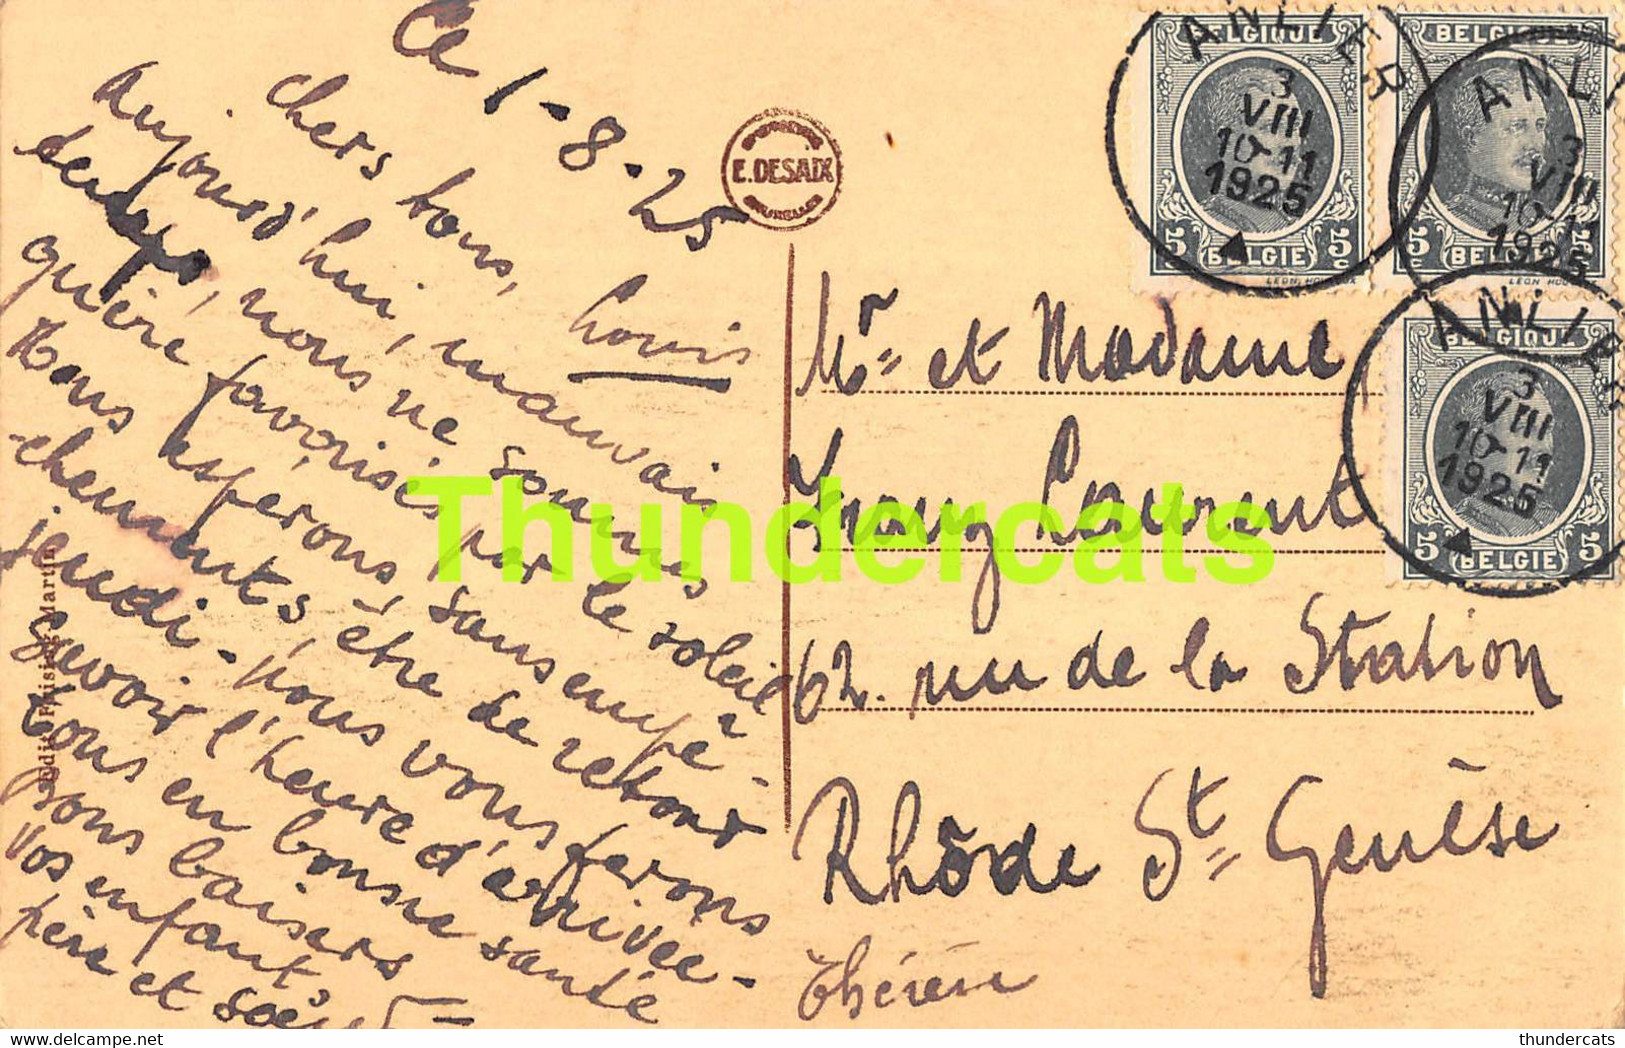 Ce 1-8-25
Chers tous,
Aujourd'hui, mauvais
temps, nous ne sommes
guère favorisés par le soleil
Nous espérons, sans empê-
-chements, être de retour
jeudi - nous vous ferons
savoir l'heure d'arrivée -
tous en bonne santé
Bons baisers
Vos enfants,
père et soeur
Louis
Thérèse
E. DESAIX
BRUXELLES
Mr et Madame
Laurent
62. rue de la Station
Rhôde St Genèse
BELGIQUE
5c 5c
BELGIE
ANLIER
3
VIII
10-11
1925
BELGIQUE
5c
BELGIE
ANLI
3
VIII
10-11
1925
BELGIQUE
5 5
BELGIE
ANLIER
3
VIII
10-11
1925
Martin
Thundercats
thundercats / Delcampe.net